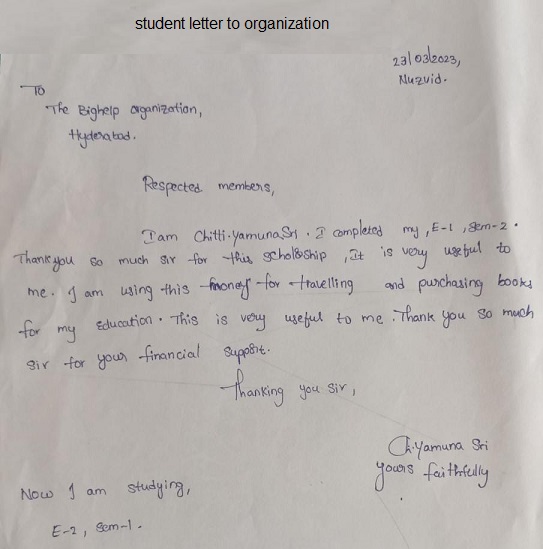 student letter to organization
23/03/2023,
Nuzvid.
To
The Bighelp organization,
Hyderabad.
Respected members,
I am Chitti.Yamuna Sri. I completed my, E-1, sem-2.
Thank you so much sir for this scholarship, It is very useful to
me. I am using this money for travelling and purchasing books
for my education. This is very useful to me. Thank you so much
sir for your financial support.
Thanking you sir,
Ch.Yamuna Sri
yours faithfully
Now I am studying,
E-2, sem-1.